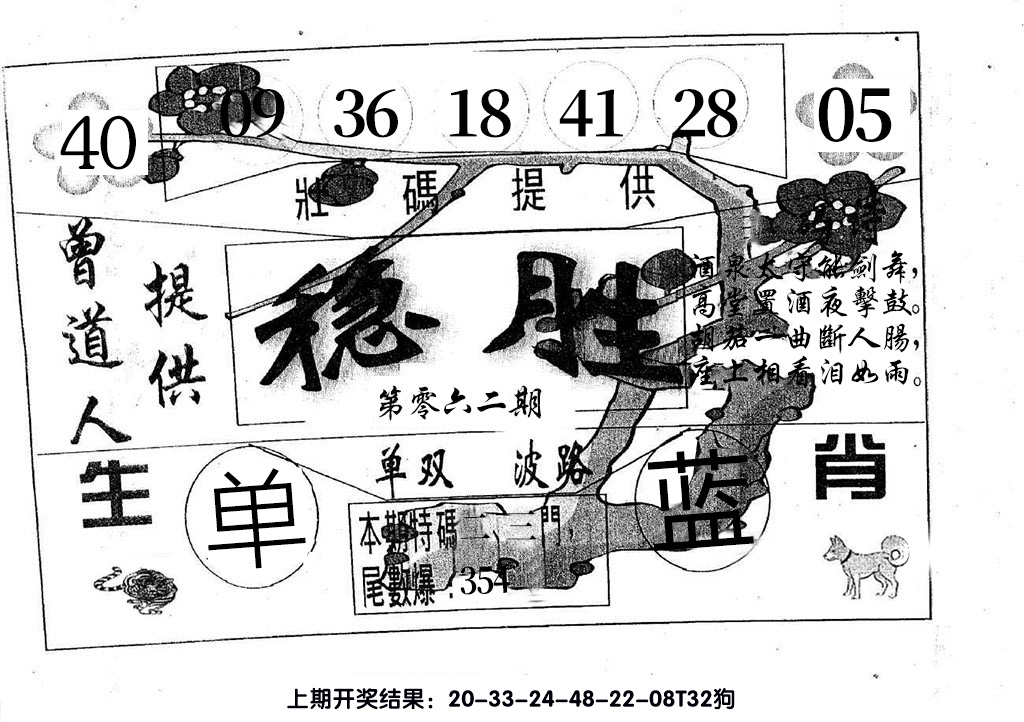 40 09 36 18 41 28 05
壯碼提供
特
曾道人
提供
稳胜
第零六二期
酒泉太守能劍舞，
高堂置酒夜擊鼓。
胡笳一曲斷人腸，
座上相看泪如雨。
单双 波路
生
单
蓝
肖
本期特碼二、三門，
尾數爆：354
上期开奖结果：20-33-24-48-22-08T32狗